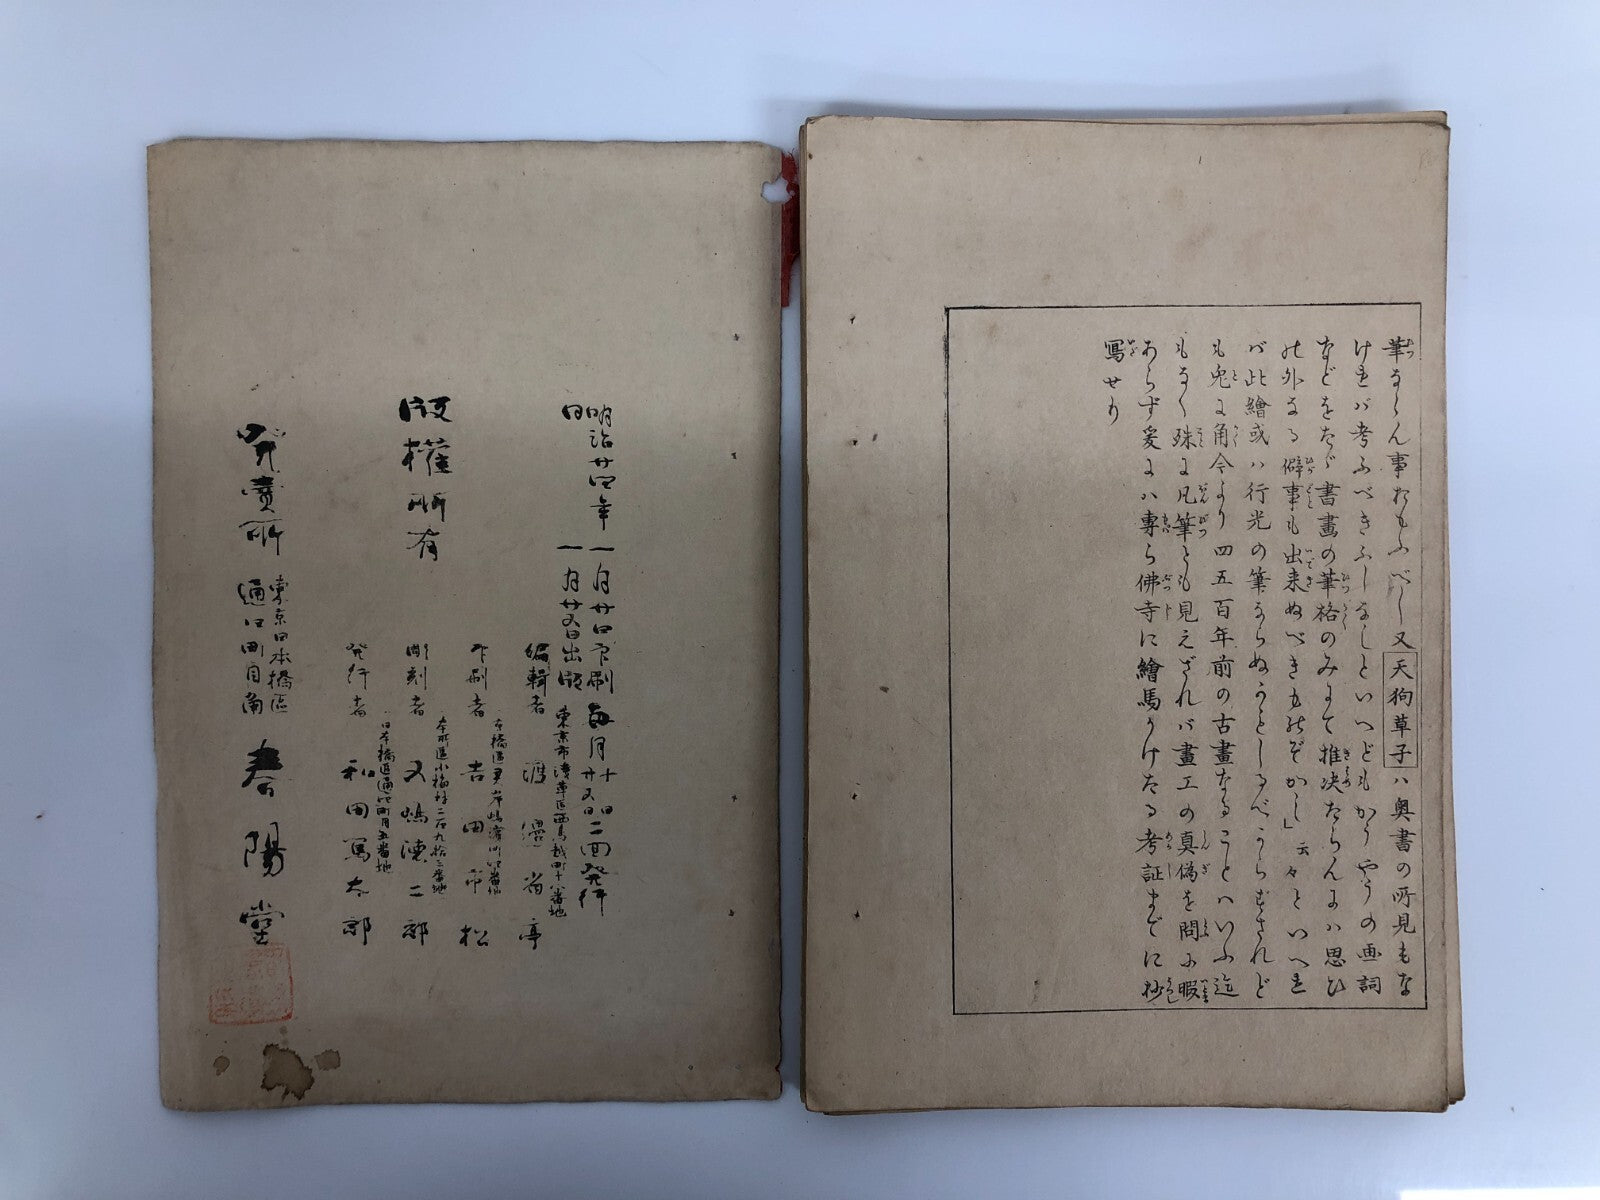 筆ならん事おもふべし又天狗草子ハ奥書の所見もな
けれバ考ふべきふしなしといへどもかうやうの画詞
などをたゞ書畫の筆格のみにて推决たらんにハ思ひ
の外なる僻事も出来ぬべきものぞかし」云々といへれ
バ此繪或ハ行光の筆ならぬかとしるべからずされど
も兎に角今より四五百年前の古畫なることハいふ迄
もなく殊に凡筆とも見えざれバ畫工の真偽を問ふ暇
あらず爰にハ專ら佛寺に繪馬かけたる考証までに抄
寫せり
明治廿四年一月廿日印刷
同一月廿五日出版
毎月十日廿五日二回発行
版權所有
編輯者 東京市淺草區西鳥越町十八番地 渡邊省亭
印刷者 吉田市松
彫刻者 本所區小梅村二百九拾三番地 五島德二郎
発行者 日本橋區通四町目五番地 和田篤太郎
発賣所 東京日本橋區通四町目角 春陽堂